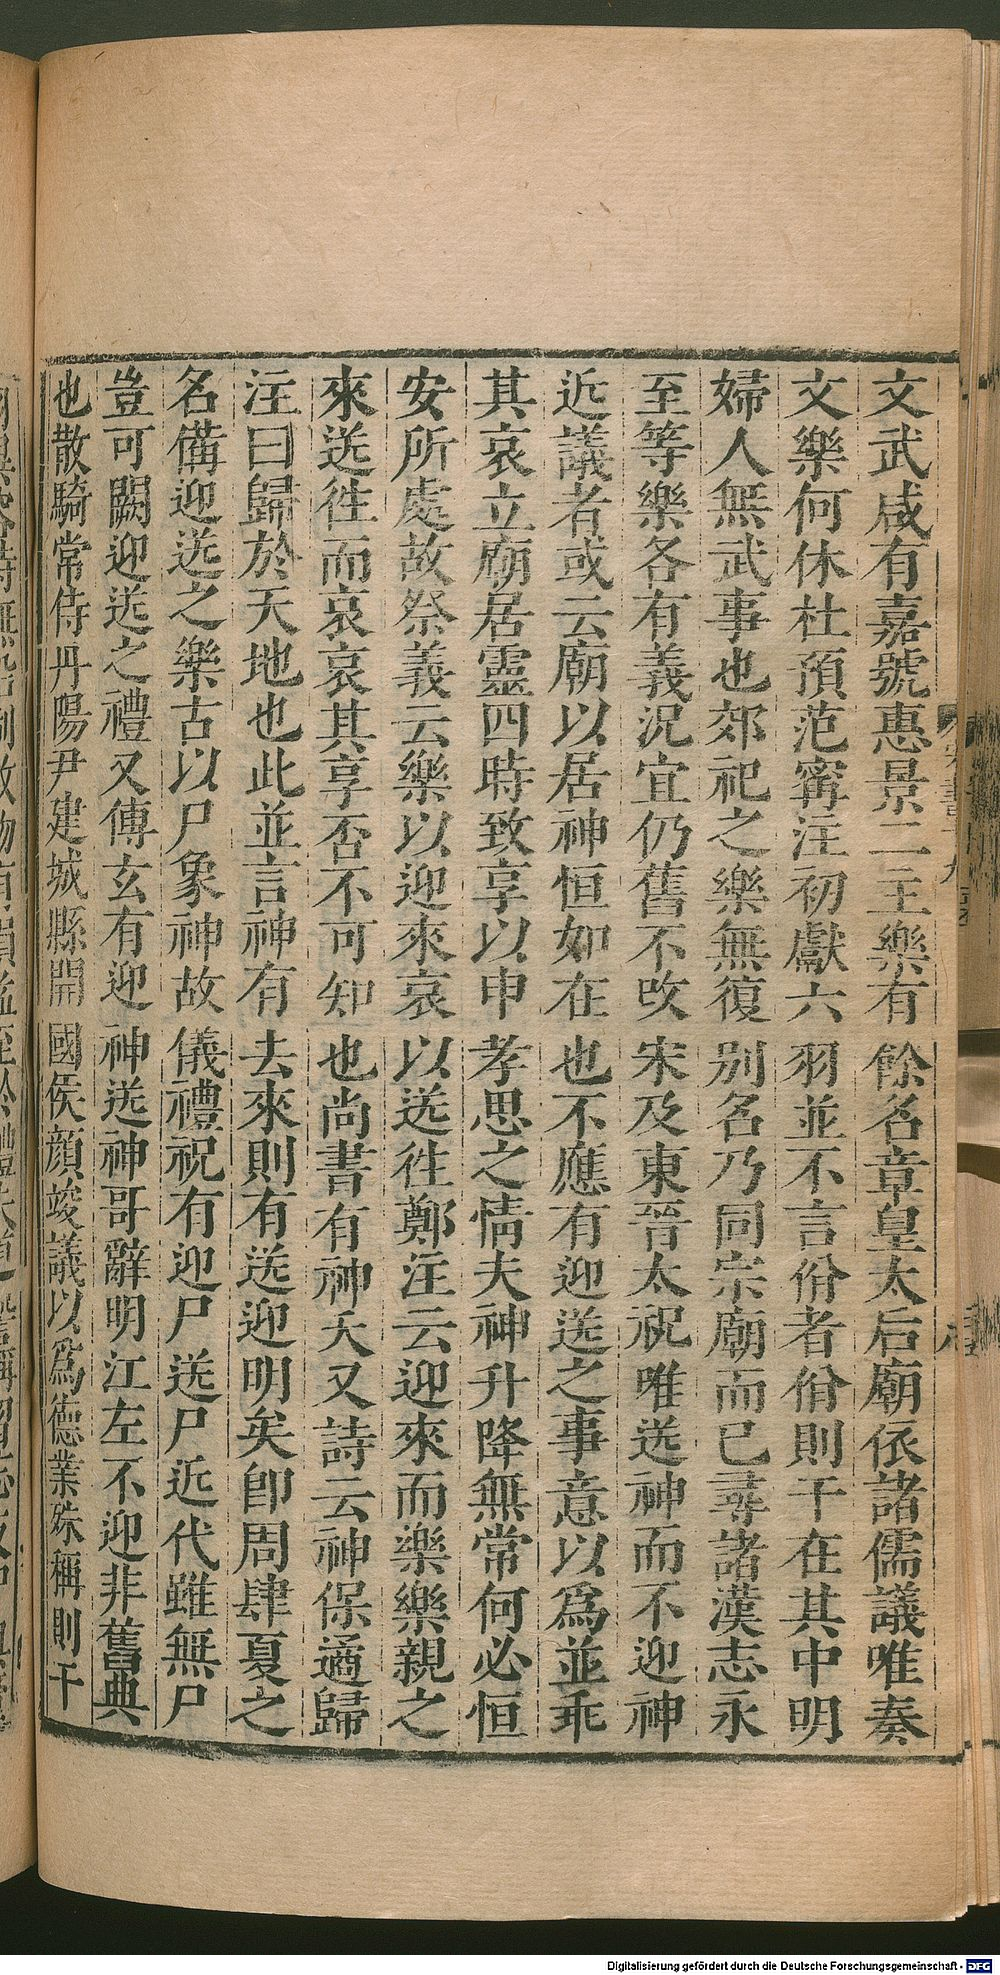 文武咸有嘉號惠景二主樂有餘名章皇太后廟依諸儒議唯奏
文樂何休杜預范甯注初獻六羽並不言佾者佾則干在其中明
婦人無武事也郊祀之樂無復別名乃同宗廟而已尋諸漢志永
至等樂各有義況宜仍舊不改宋及東晉太祝唯送神而不迎神
近議者或云廟以居神恒如在也不應有迎送之事意以爲並乖
其哀立廟居靈四時致享以申孝思之情夫神升降無常何必恒
安所處故祭義云樂以迎來哀以送徃鄭注云迎來而樂樂親之
來送徃而哀哀其享否不可知也尚書有神夭又詩云神保遹歸
注曰歸於天地也此並言神有去來則有送迎明矣卽周肆夏之
名備迎送之樂古以尸象神故儀禮祝有迎尸送尸近代雖無尸
豈可闕迎送之禮又傅玄有迎神送神哥辭明江左不迎非舊典
也散騎常侍丹陽尹建城縣開國侯顔竣議以爲德業殊稱則干
Digitalisierung gefördert durch die Deutsche Forschungsgemeinschaft - DFG